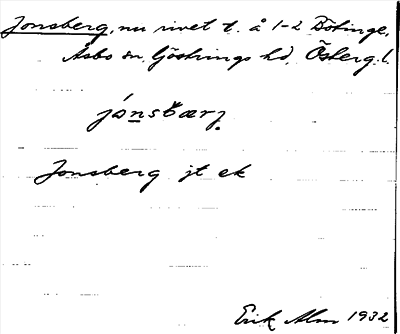 Jonsberg, nu rivet t. å 1-2 Bötinge,
Åsbo sn. Göstrings hd, Österg. l.
Jonsberg jt ek
Erik Alm 1932